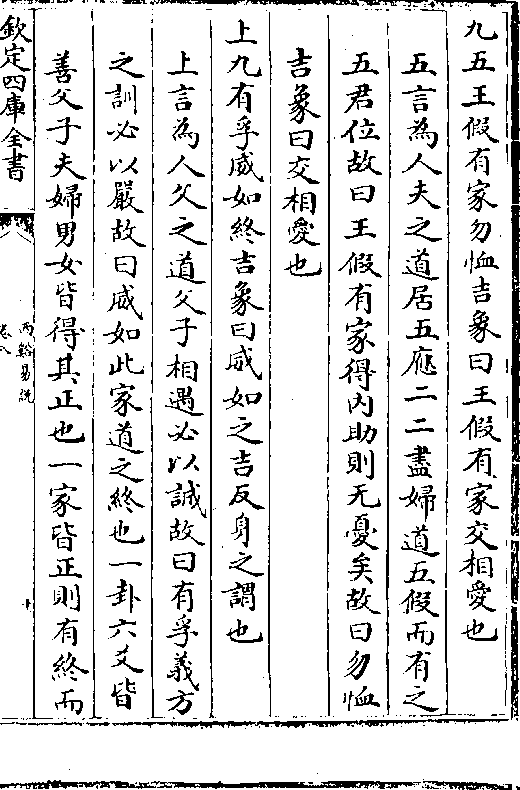 九五王假有家勿恤吉象曰王假有家交相愛也
五言為人夫之道居五應二二盡婦道五假而有之
五君位故曰王假有家得内助則无憂矣故曰勿恤
吉象曰交相愛也
上九有孚威如終吉象曰威如之吉反身之謂也
上言為人父之道父子相遇必以誠故曰有孚義方
之訓必以嚴故曰威如此家道之終也一卦六爻皆
善父子夫婦男女皆得其正也一家皆正則有終而
欽定四庫全書
丙谿易説
卷八
十